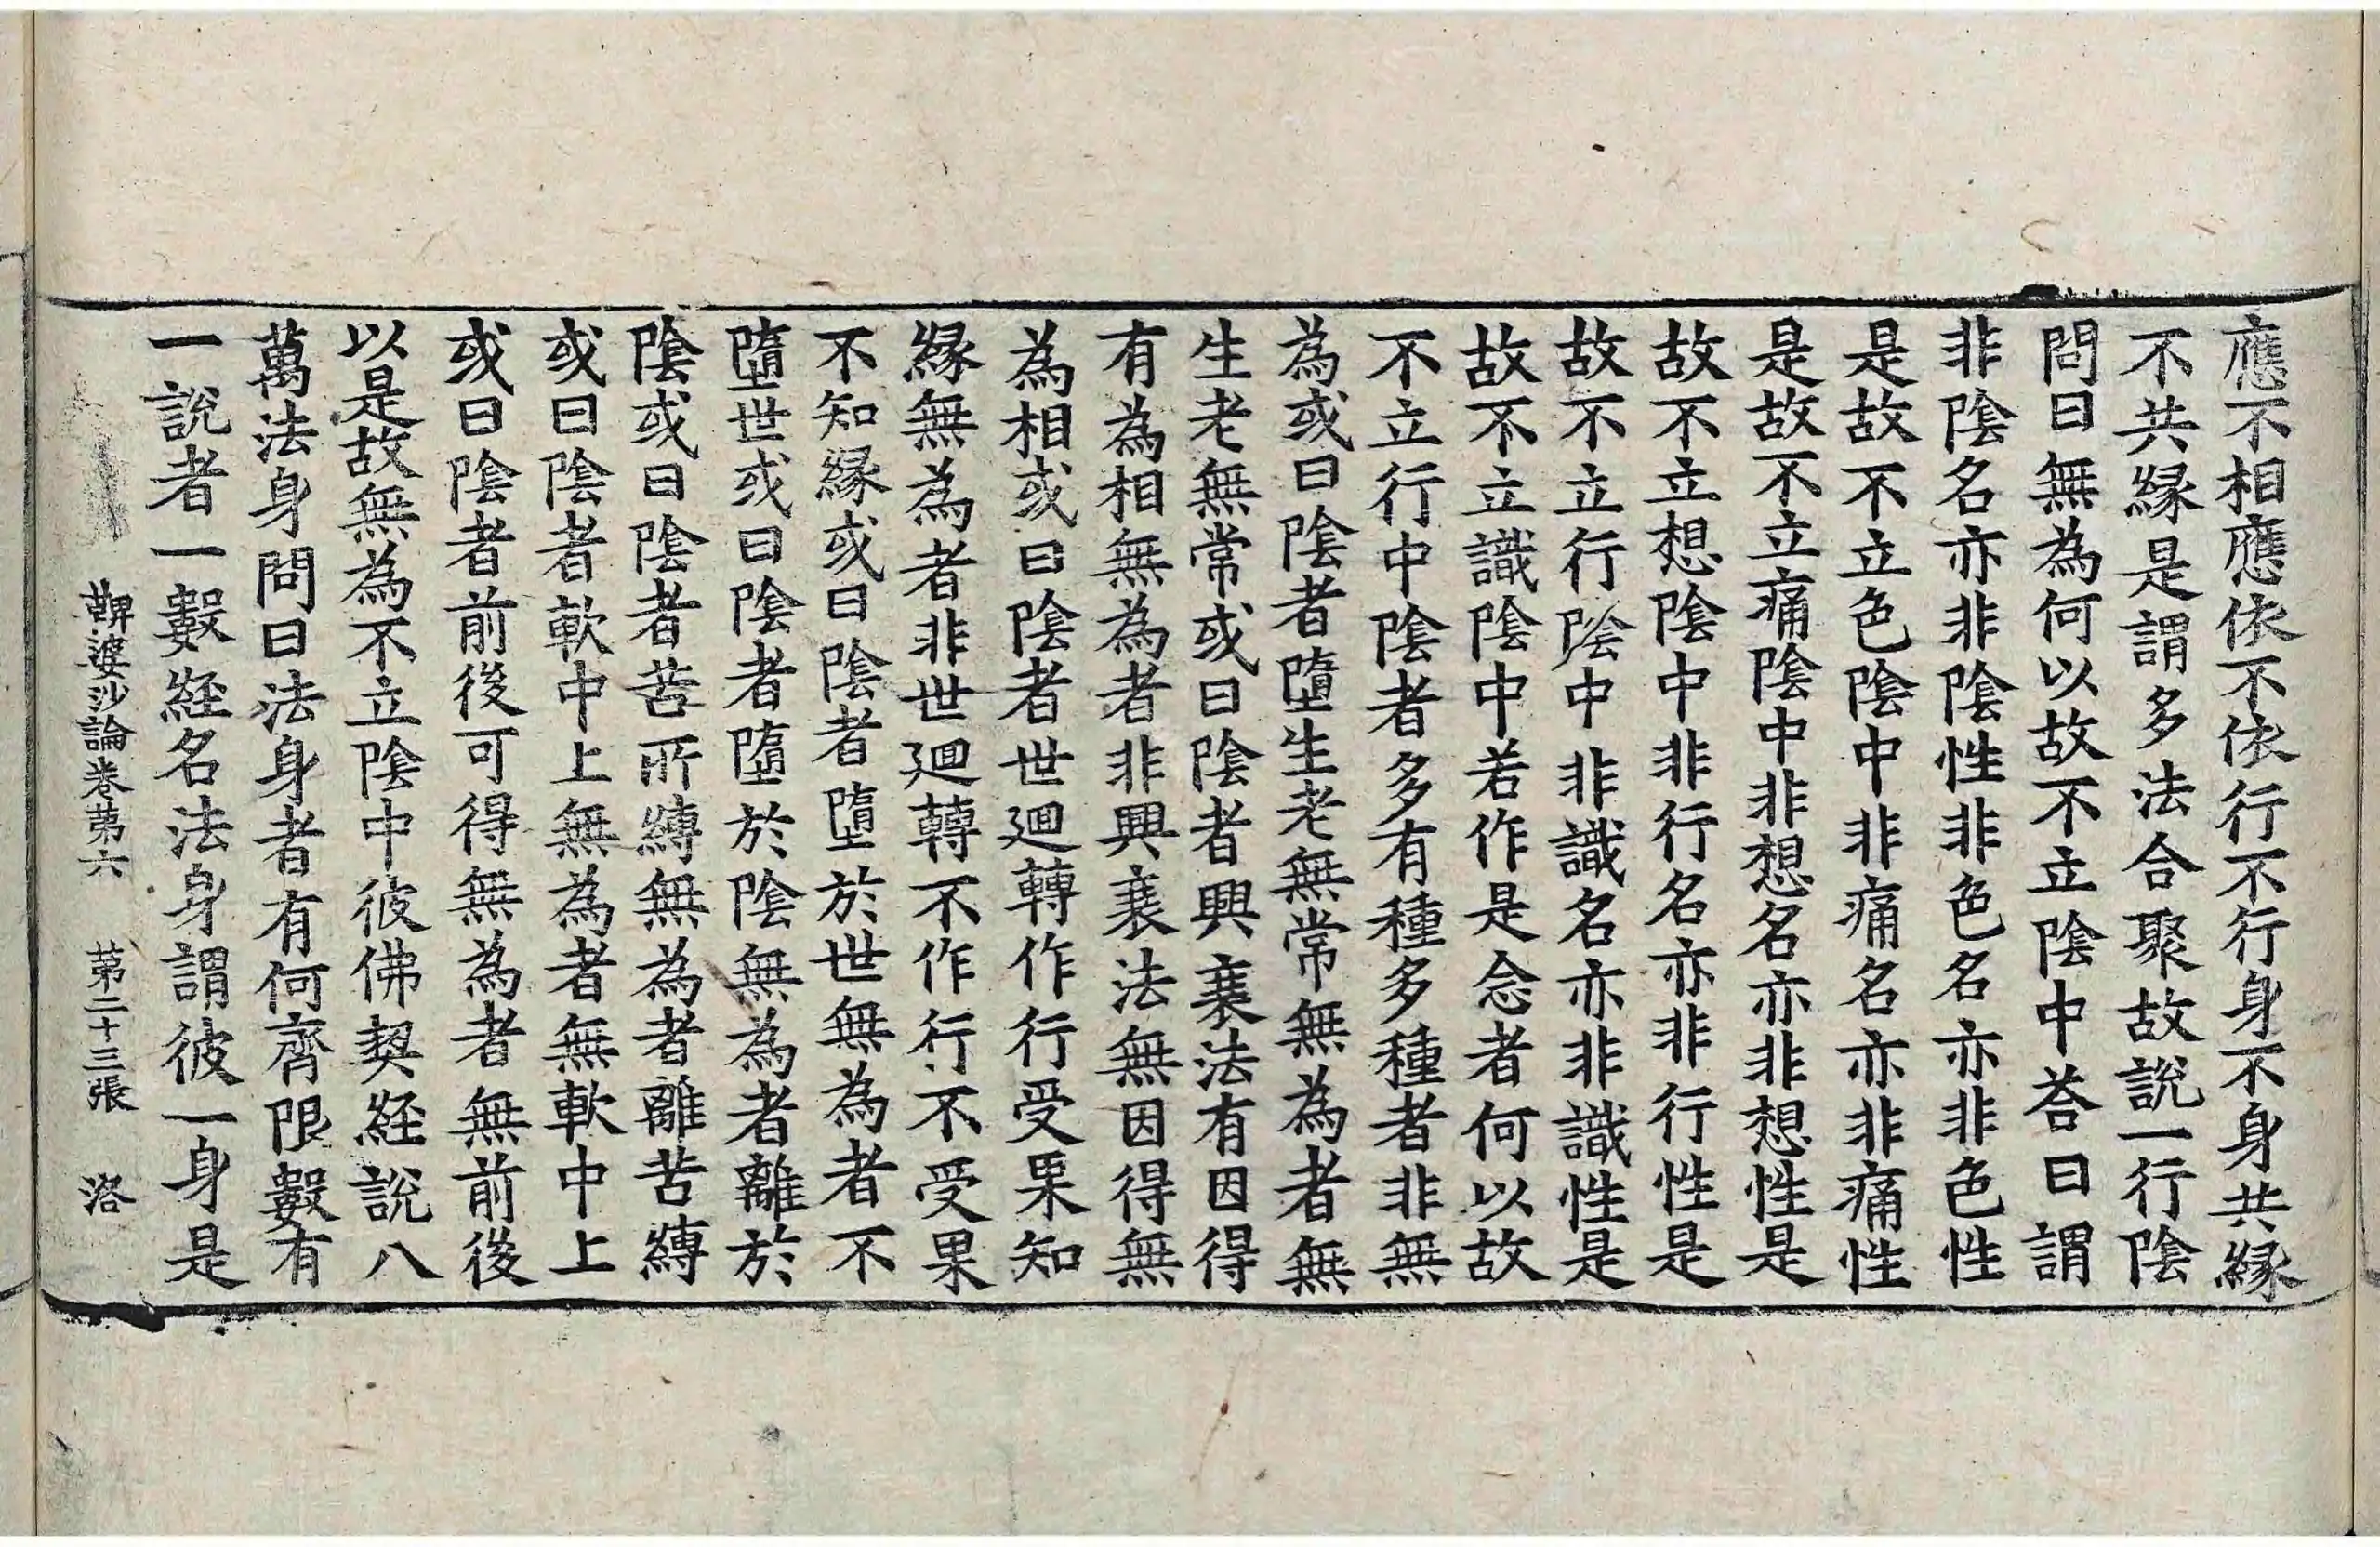 應不相應依不依行不行身不身共縁
不共縁是謂多法合聚故說一行陰
問曰無為何以故不立陰中荅曰謂
非陰名亦非陰性非色名亦非色性
是故不立色陰中非痛名亦非痛性
是故不立痛陰中非想名亦非想性是
故不立想陰中非行名亦非行性是
故不立行陰中非識名亦非識性是
故不立識陰中若作是念者何以故
不立行中陰者多有種多種者非無
為或曰陰者墮生老無常無為者無
生老無常或曰陰者興衰法有因得
有為相無為者非興衰法無因得無
為相或曰陰者世迴轉作行受果知
縁無為者非世迴轉不作行不受果
不知縁或曰陰者墮於世無為者不
墮世或曰陰者墮於陰無為者離於
陰或曰陰者苦所縛無為者離苦縛
或曰陰者軟中上無為者無軟中上
或曰陰者前後可得無為者無前後
以是故無為不立陰中彼佛契経說八
萬法身問曰法身者有何齊限數有
一說者一數経名法身謂彼一身是
鞞婆沙論卷苐六 苐二十三張 洛